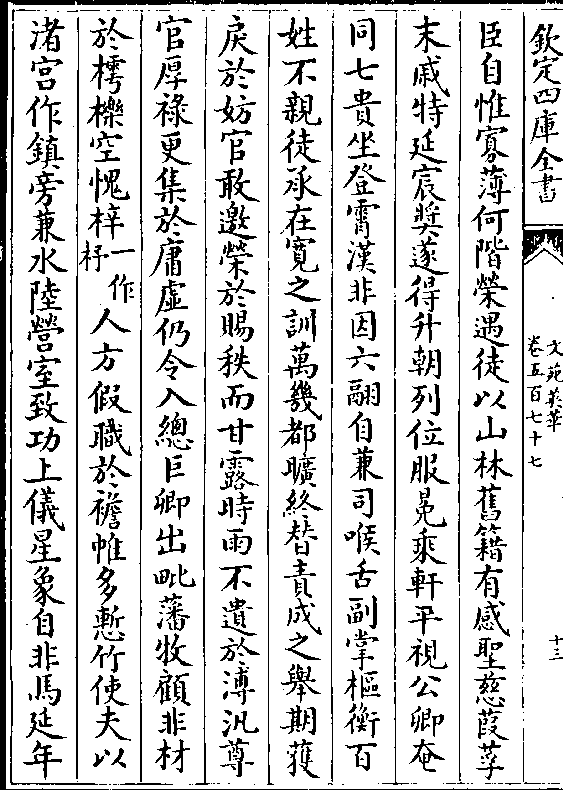 欽定四庫全書
文苑英華
卷五百七十七
十三
臣自惟寡薄何階榮遇徒以山林舊籍有感聖慈葭莩
末戚特延宸奬遂得升朝列位服冕乘軒平視公卿奄
同七貴坐登霄漢非因六翮自兼司喉舌副掌樞衡百
姓不親徒承在寛之訓萬幾都曠終替責成之舉期獲
戾於妨官敢邀榮於賜秩而甘露時雨不遺於溥汎尊
官厚祿更集於庸虛仍令入總臣卿出毗藩牧顧非材
於樗櫟空愧梓一作杍人方假職於襜帷多慙竹使夫以
渚宫作鎮旁兼水陸營室致功上儀星象自非馬延年